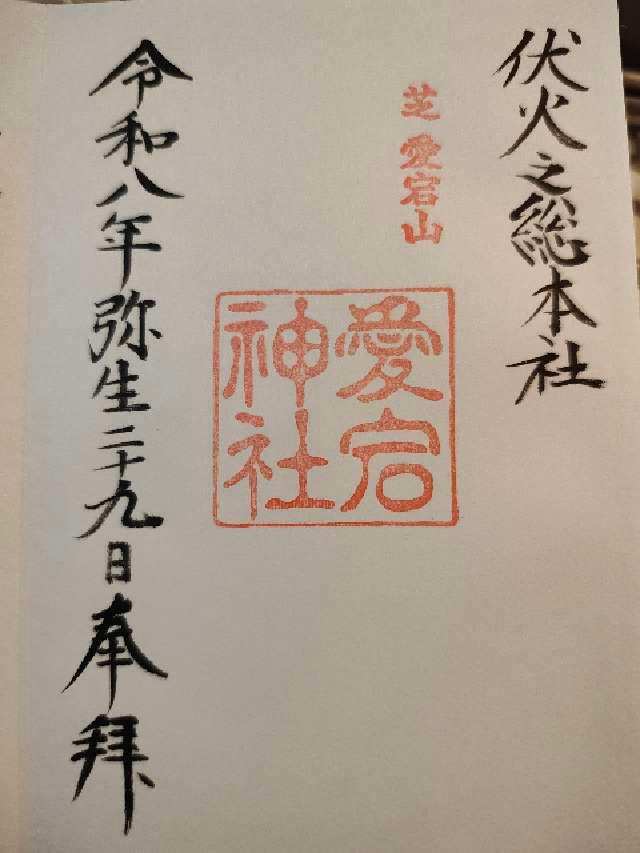 伏火之総本社
芝 愛宕山
愛宕
神社
令和八年弥生二十九日奉拝